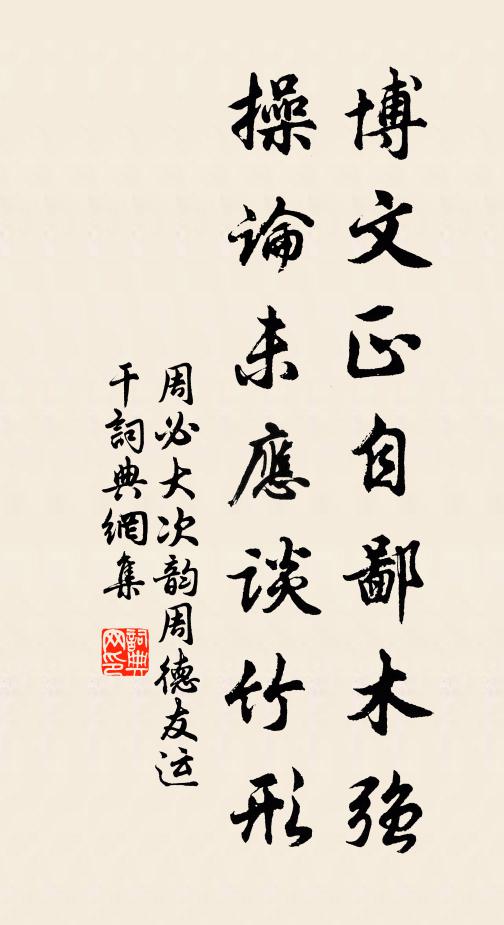 博文正自鄙木强
操論未應談竹形
周必大次韵周德友运
干詞典網集
詞典网印